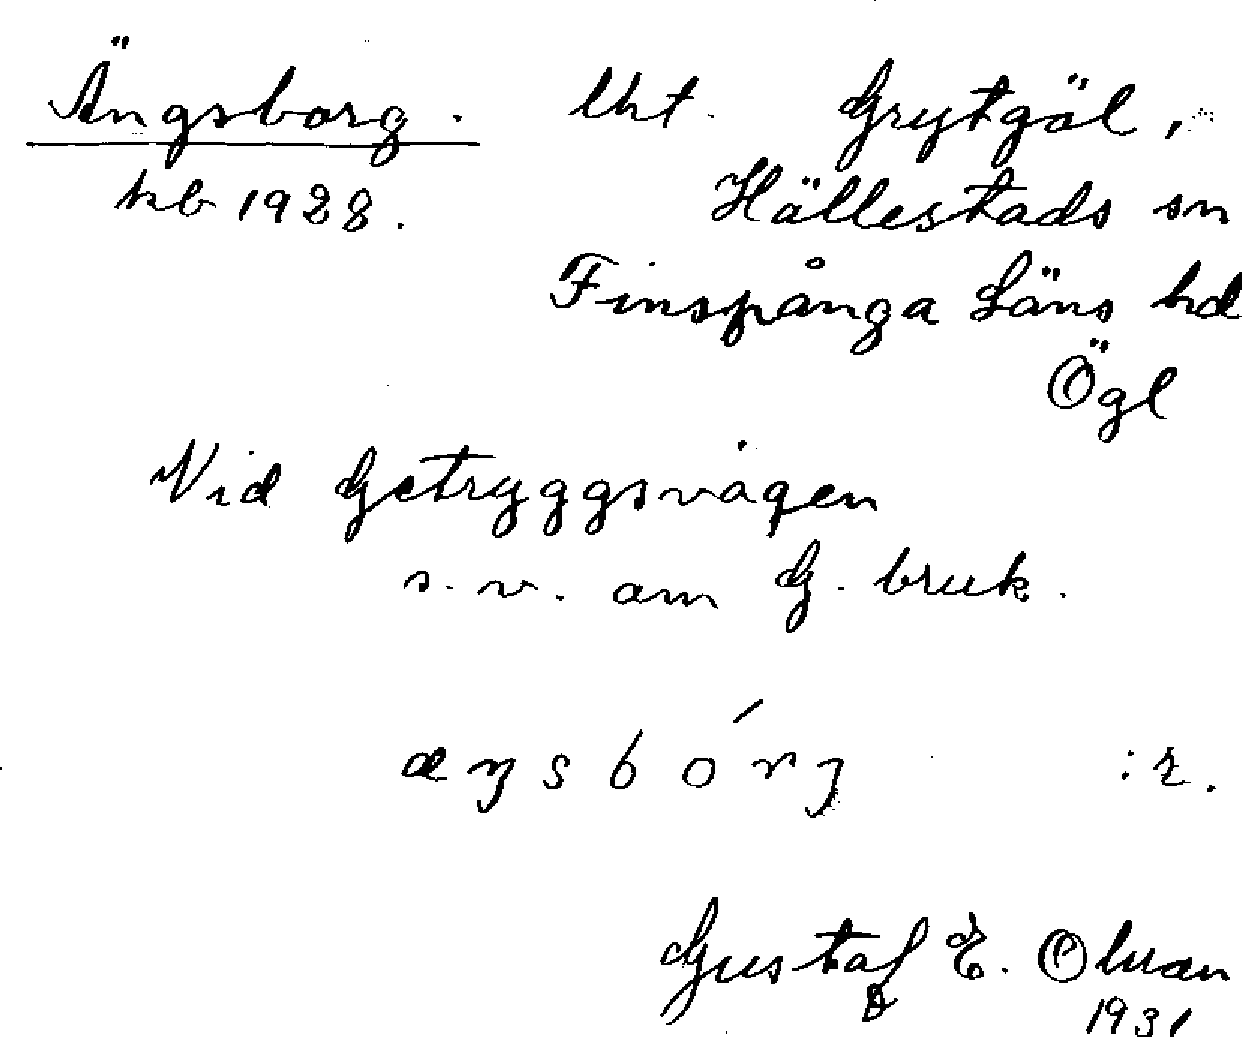 Ängsborg. lht. Grytgöl,
kb 1928. Hällestads sn
Finspånga Läns hd
Ögl
Vid Getryggsvägen
s.v. om G. bruk.
æŋsbórj :r.
Gustaf E.
1931